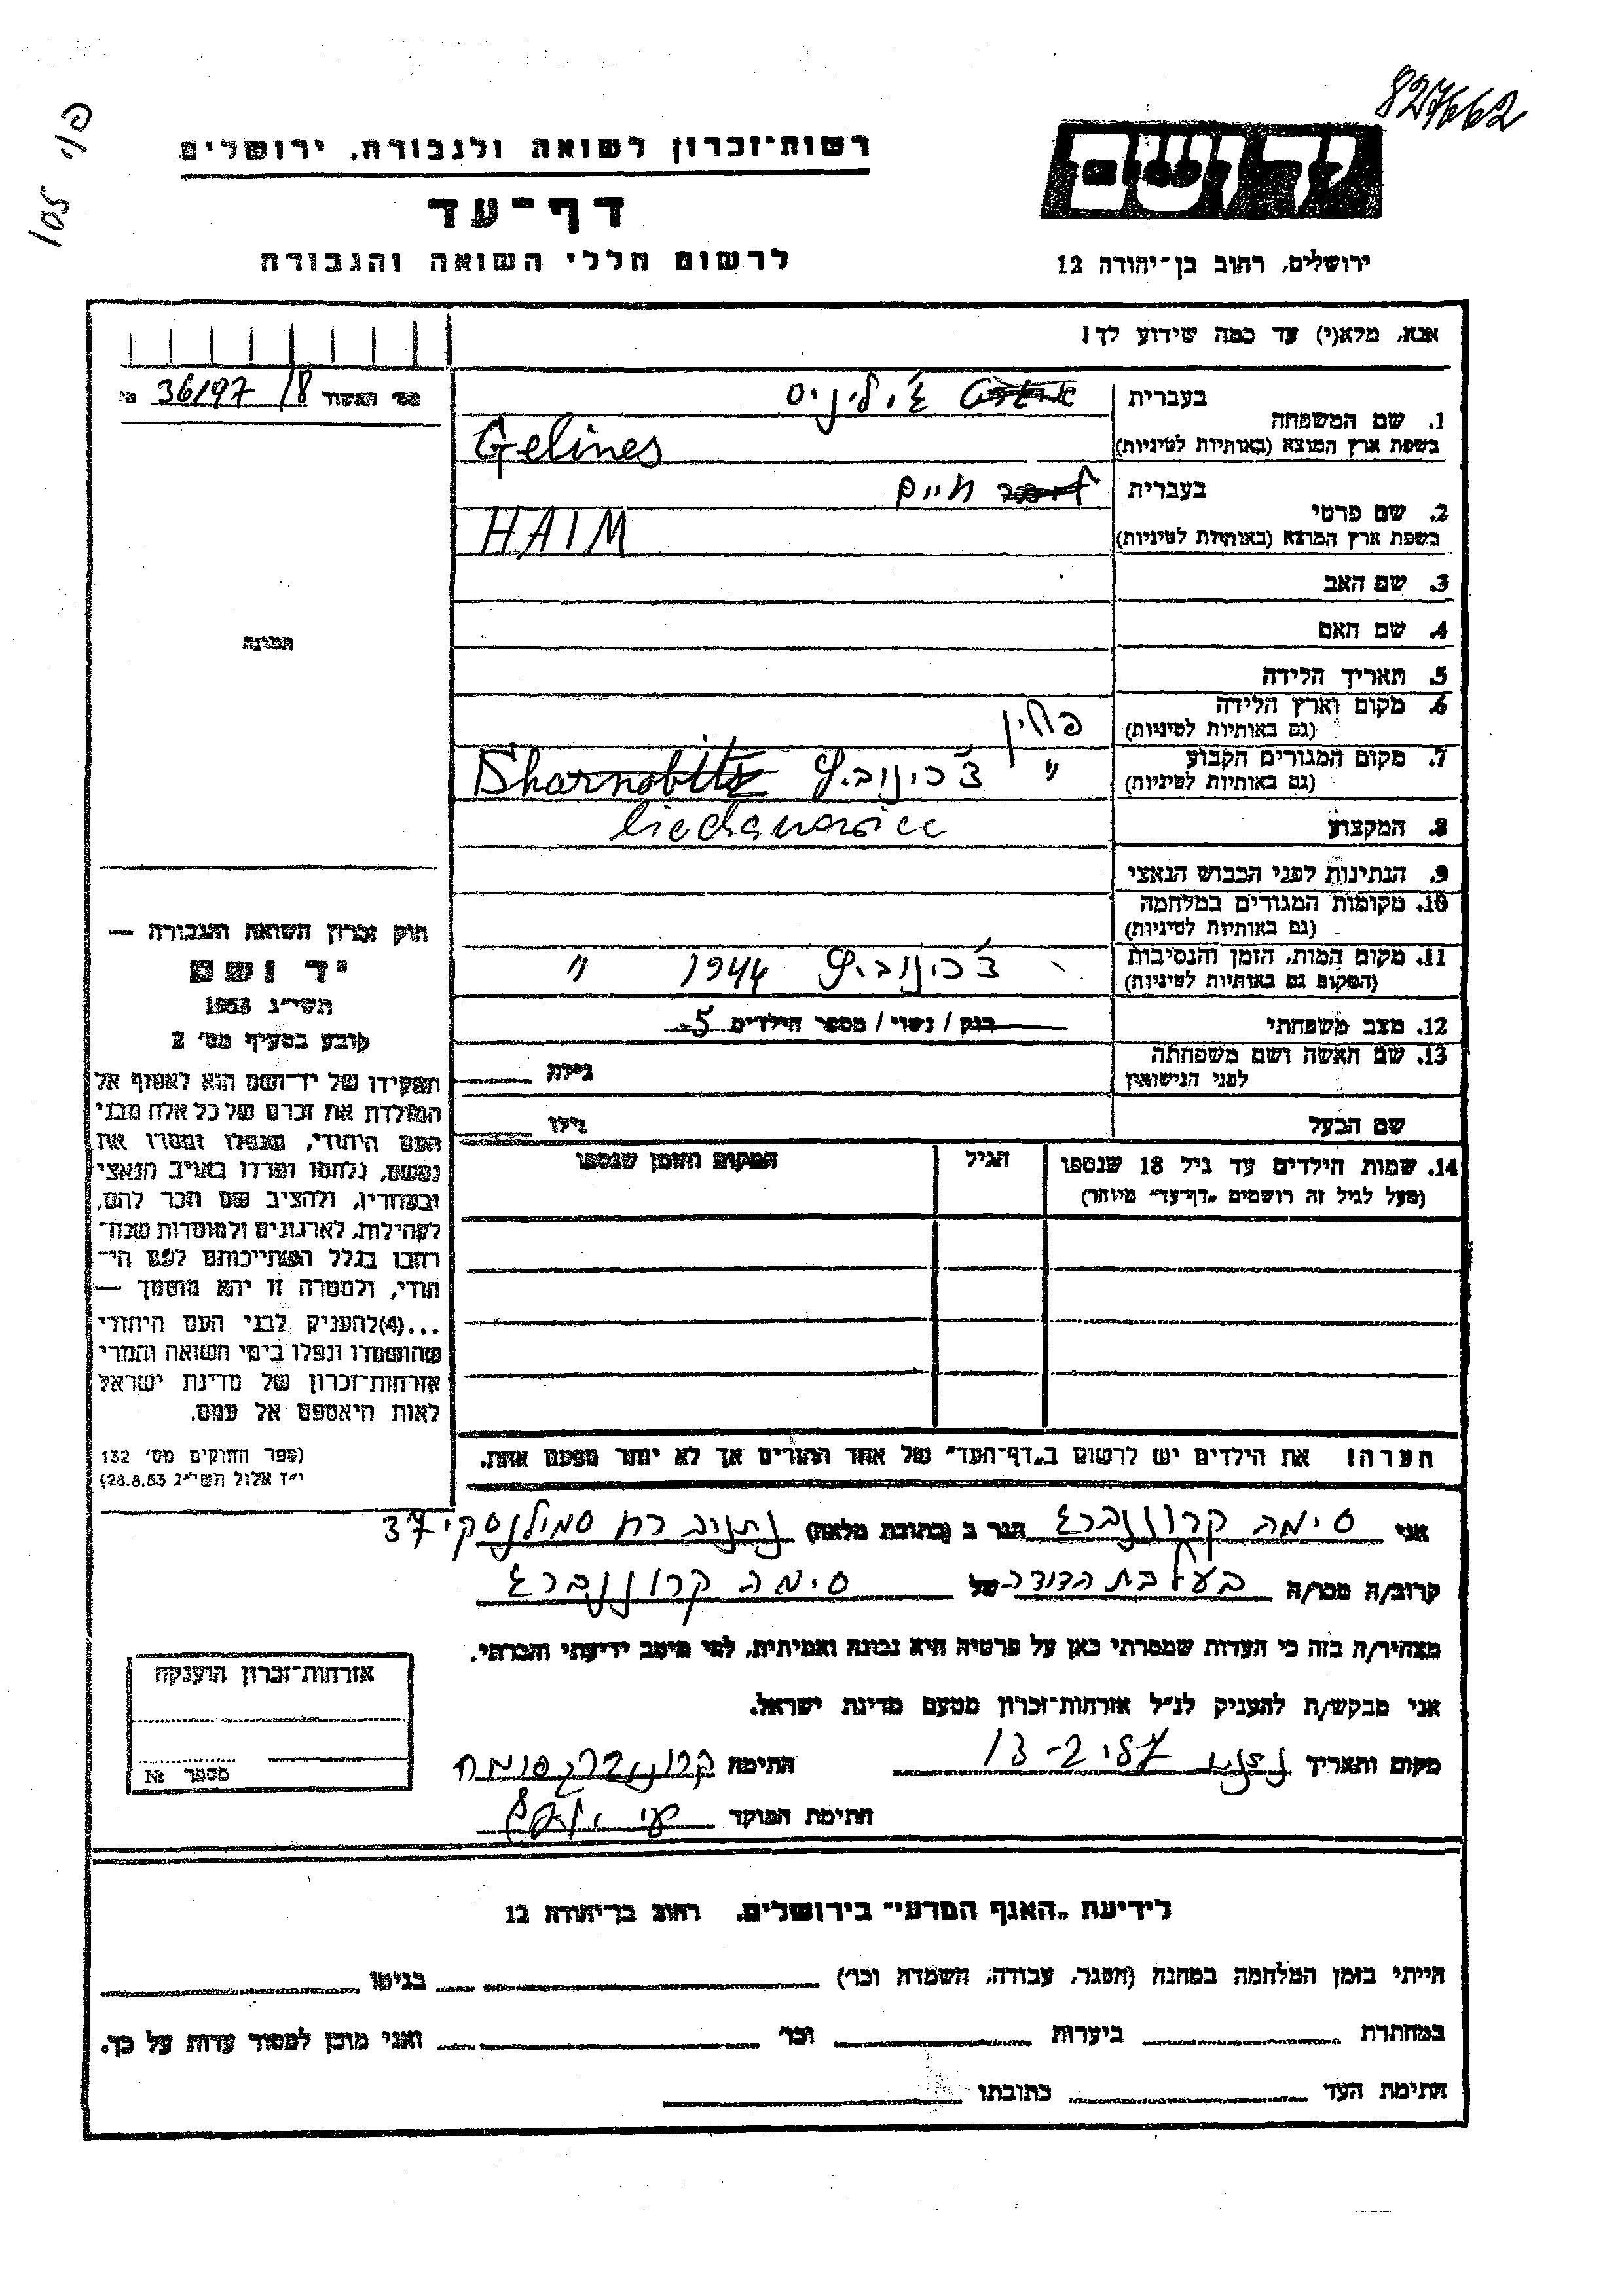 827662
פני 105
יד ושם
ירושלים, רחוב בן־יהודה 12
רשות־זכרון לשואה ולגבורה, ירושלים
דף־עד
לרשום חללי השואה והגבורה
אנא, מלא(י) עד כמה שידוע לך!
1. שם המשפחה
בעברית ג'ליניס
בשפת ארץ המוצא (באותיות לטיניות) Gelines
2. שם פרטי
בעברית חיים
בשפת ארץ המוצא (באותיות לטיניות) HAIM
3. שם האב
4. שם האם
5. תאריך הלידה
6. מקום וארץ הלידה פולין
(גם באותיות לטיניות)
7. מקום המגורים הקבוע " צ'כינוביץ Sharnobitz
(גם באותיות לטיניות)
Ciechanowiec
8. המקצוע
9. הנתינות לפני הכבוש הנאצי
10. מקומות המגורים במלחמה
(גם באותיות לטיניות)
11. מקום המות, הזמן והנסיבות צ'כינוביץ 1944 "
(המקום גם באותיות לטיניות)
12. מצב משפחתי רווק / נשוי / מספר הילדים 5
13. שם האשה ושם משפחתה גילה
לפני הנישואין
שם הבעל גילו
14. שמות הילדים עד גיל 18 שנספו הגיל המקום והזמן שנספו
(מעל לגיל זה רושמים „דף־עד" מיוחד)
הערה! את הילדים יש לרשום ב„דף־העד" של אחד ההורים אך לא יותר מפעם אחת.
מס' האשור 36/97 /8
תמונה
חוק זכרון השואה והגבורה —
יד ושם
תשי"ג 1953
קובע בסעיף מס' 2
תפקידו של יד־ושם הוא לאסוף אל
המולדת את זכרם של כל אלה מבני
העם היהודי, שנפלו ומסרו את
נפשם, נלחמו ומרדו באויב הנאצי
ובעוזריו, ולהציב שם וזכר להם,
לקהילות, לארגונים ולמוסדות שנח־
רבו בגלל השתייכותם לעם הי־
הודי, ולמטרה זו יהא מוסמך —
...(4)להעניק לבני העם היהודי
שהושמדו ונפלו בימי השואה והמרי
אזרחות־זכרון של מדינת ישראל
לאות היאספם אל עמם.
(ספר החוקים מס' 132
י"ז אלול תשי"ג 28.8.53)
אני סימה קרוננברג הגר ב (כתובת מלאה) נתניה רח סמילנסקי 37
קרוב/ה מכר/ה בעל בת הדודה של סימה קרוננברג
מצהיר/ה בזה כי העדות שמסרתי כאן על פרטיה היא נכונה ואמיתית, לפי מיטב ידיעתי והכרתי.
אני מבקש/ת להעניק לנ"ל אזרחות־זכרון מטעם מדינת ישראל.
מקום ותאריך 13-2- חתימה קרוננברג סימה
חתימת הפוקד
אזרחות־זכרון הוענקה
מספר №
לידיעת „האגף המדעי" בירושלים, רחוב בן־יהודה 12
הייתי בזמן המלחמה במחנה (הסגר, עבודה, השמדה וכו') בגיטו
במחתרת ביערות וכו' ואני מוכן למסור עדות על כך.
חתימת העד כתובתו